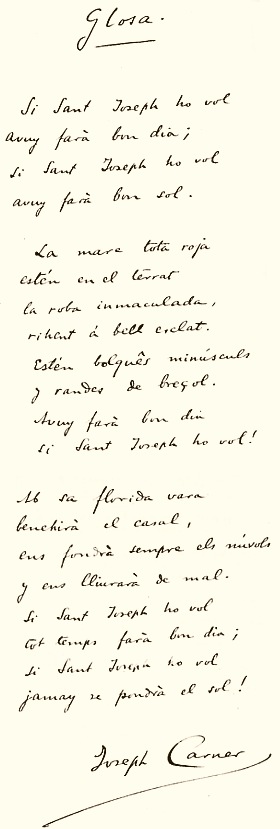 Glosa.
Si Sant Joseph ho vol
avuy farà bon dia;
si Sant Joseph ho vol
avuy farà bon sol.
La mare tota roja
estén en el terrat
la roba inmaculada,
rihent á bell esclat.
Estén bolquês minúsculs
y randes de breçol.
Avuy farà bon dia
si Sant Joseph ho vol!
Ab sa florida vara
benehirà el casal,
ens fondrà sempre els núvols
y ens lliurarà de mal.
Si Sant Joseph ho vol
tot temps farà bon dia;
si Sant Joseph ho vol
jamay se pondrà el sol!
Joseph Carner